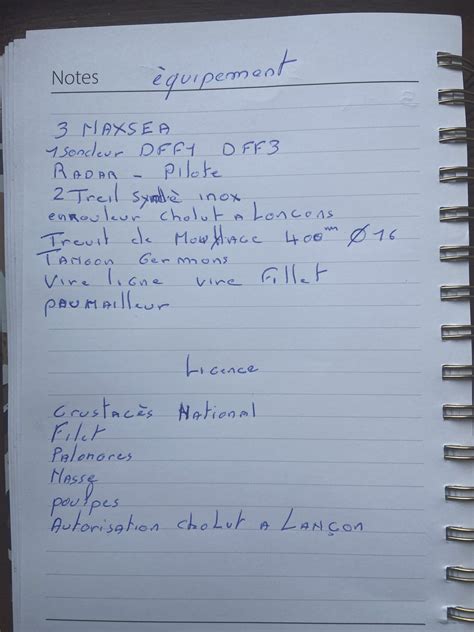 Notes équipement
3 MAXSEA
1 Sondeur DFF1 DFF3
RADAR - Pilote
2 Treil inox
enrouleur chalut a Lançons
Treuil de Mouillage 400 mm Ø 16
TANGON Germons
Vire ligne vire Fillet
PAUMAilleur
Licence
Crustacès National
Filet
Palangres
Nasse
poulpes
Autorisation chalut a LANÇON